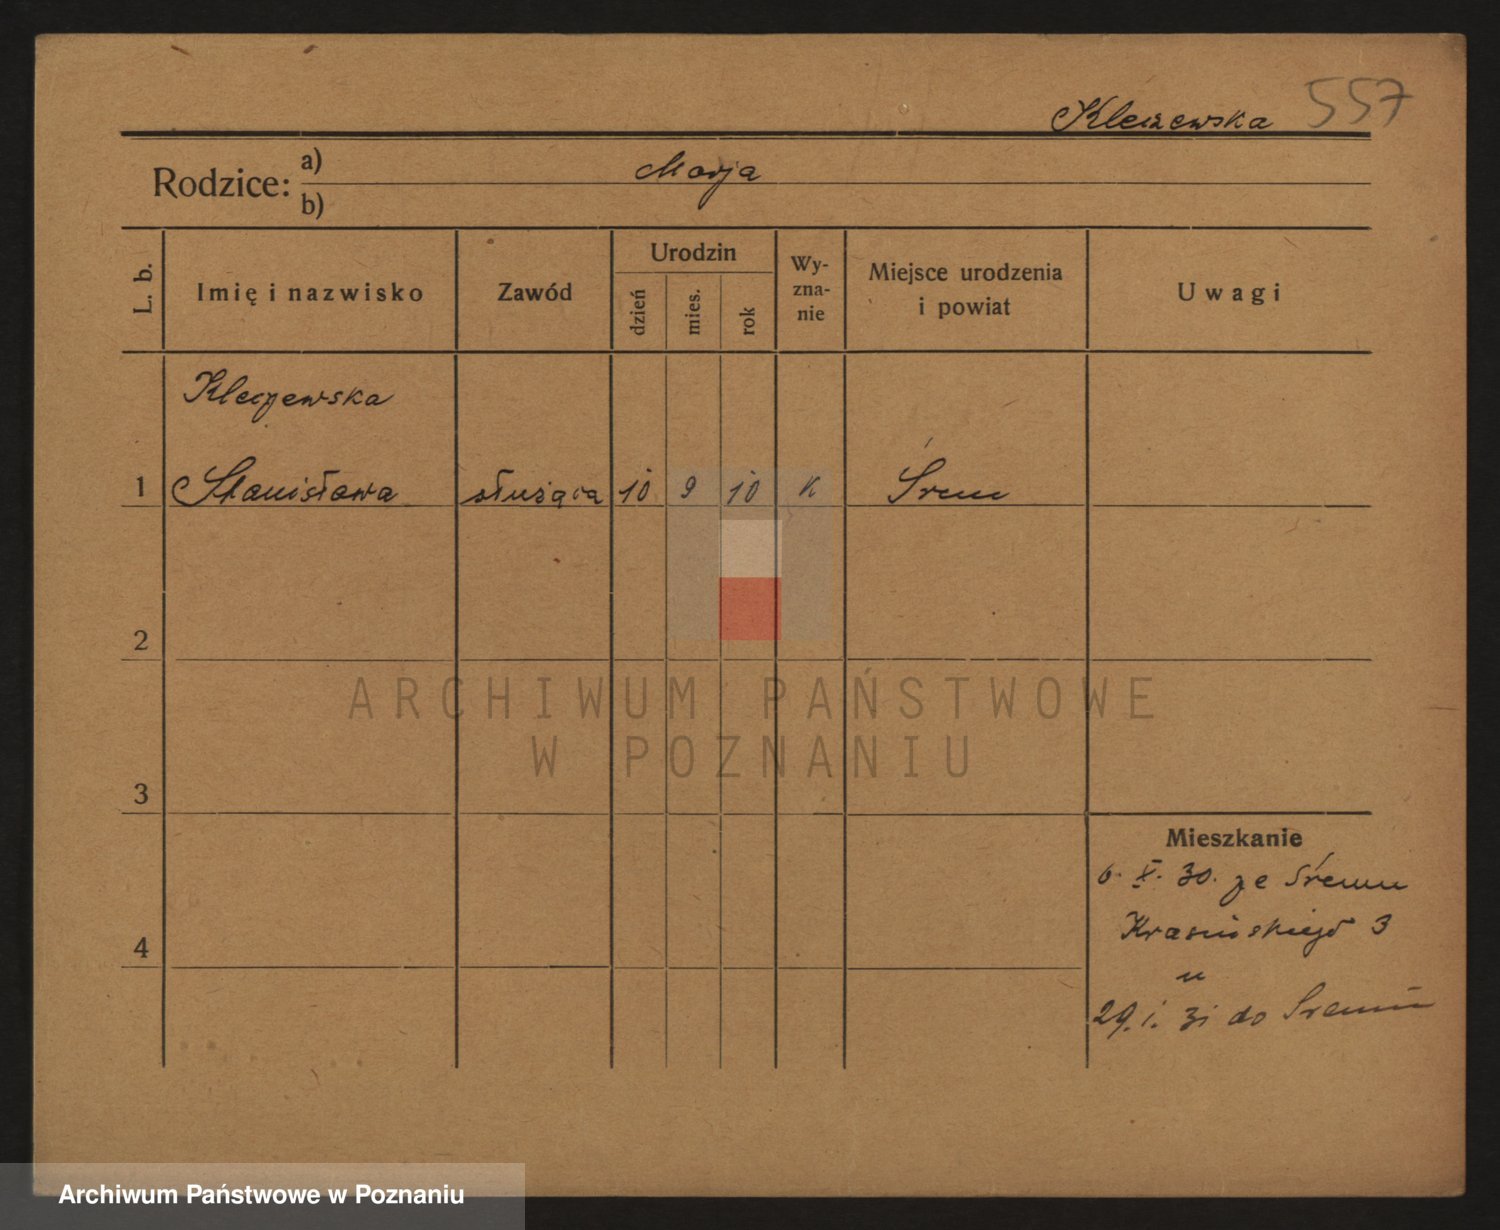 Kleczewska 557
Rodzice: a) Marja
b)
L. b. Imię i nazwisko Zawód Urodzin dzień mies. rok Wy-zna-nie Miejsce urodzenia i powiat Uwagi
Kleczewska
1 Stanisława służąca 10 9 10 K Śrem
2
ARCHIWUM PAŃSTWOWE
W POZNANIU
3
Mieszkanie
6. X. 30. ze Śremu
Krasińskiego 3
4
29. i. 31 do Śremu
Archiwum Państwowe w Poznaniu